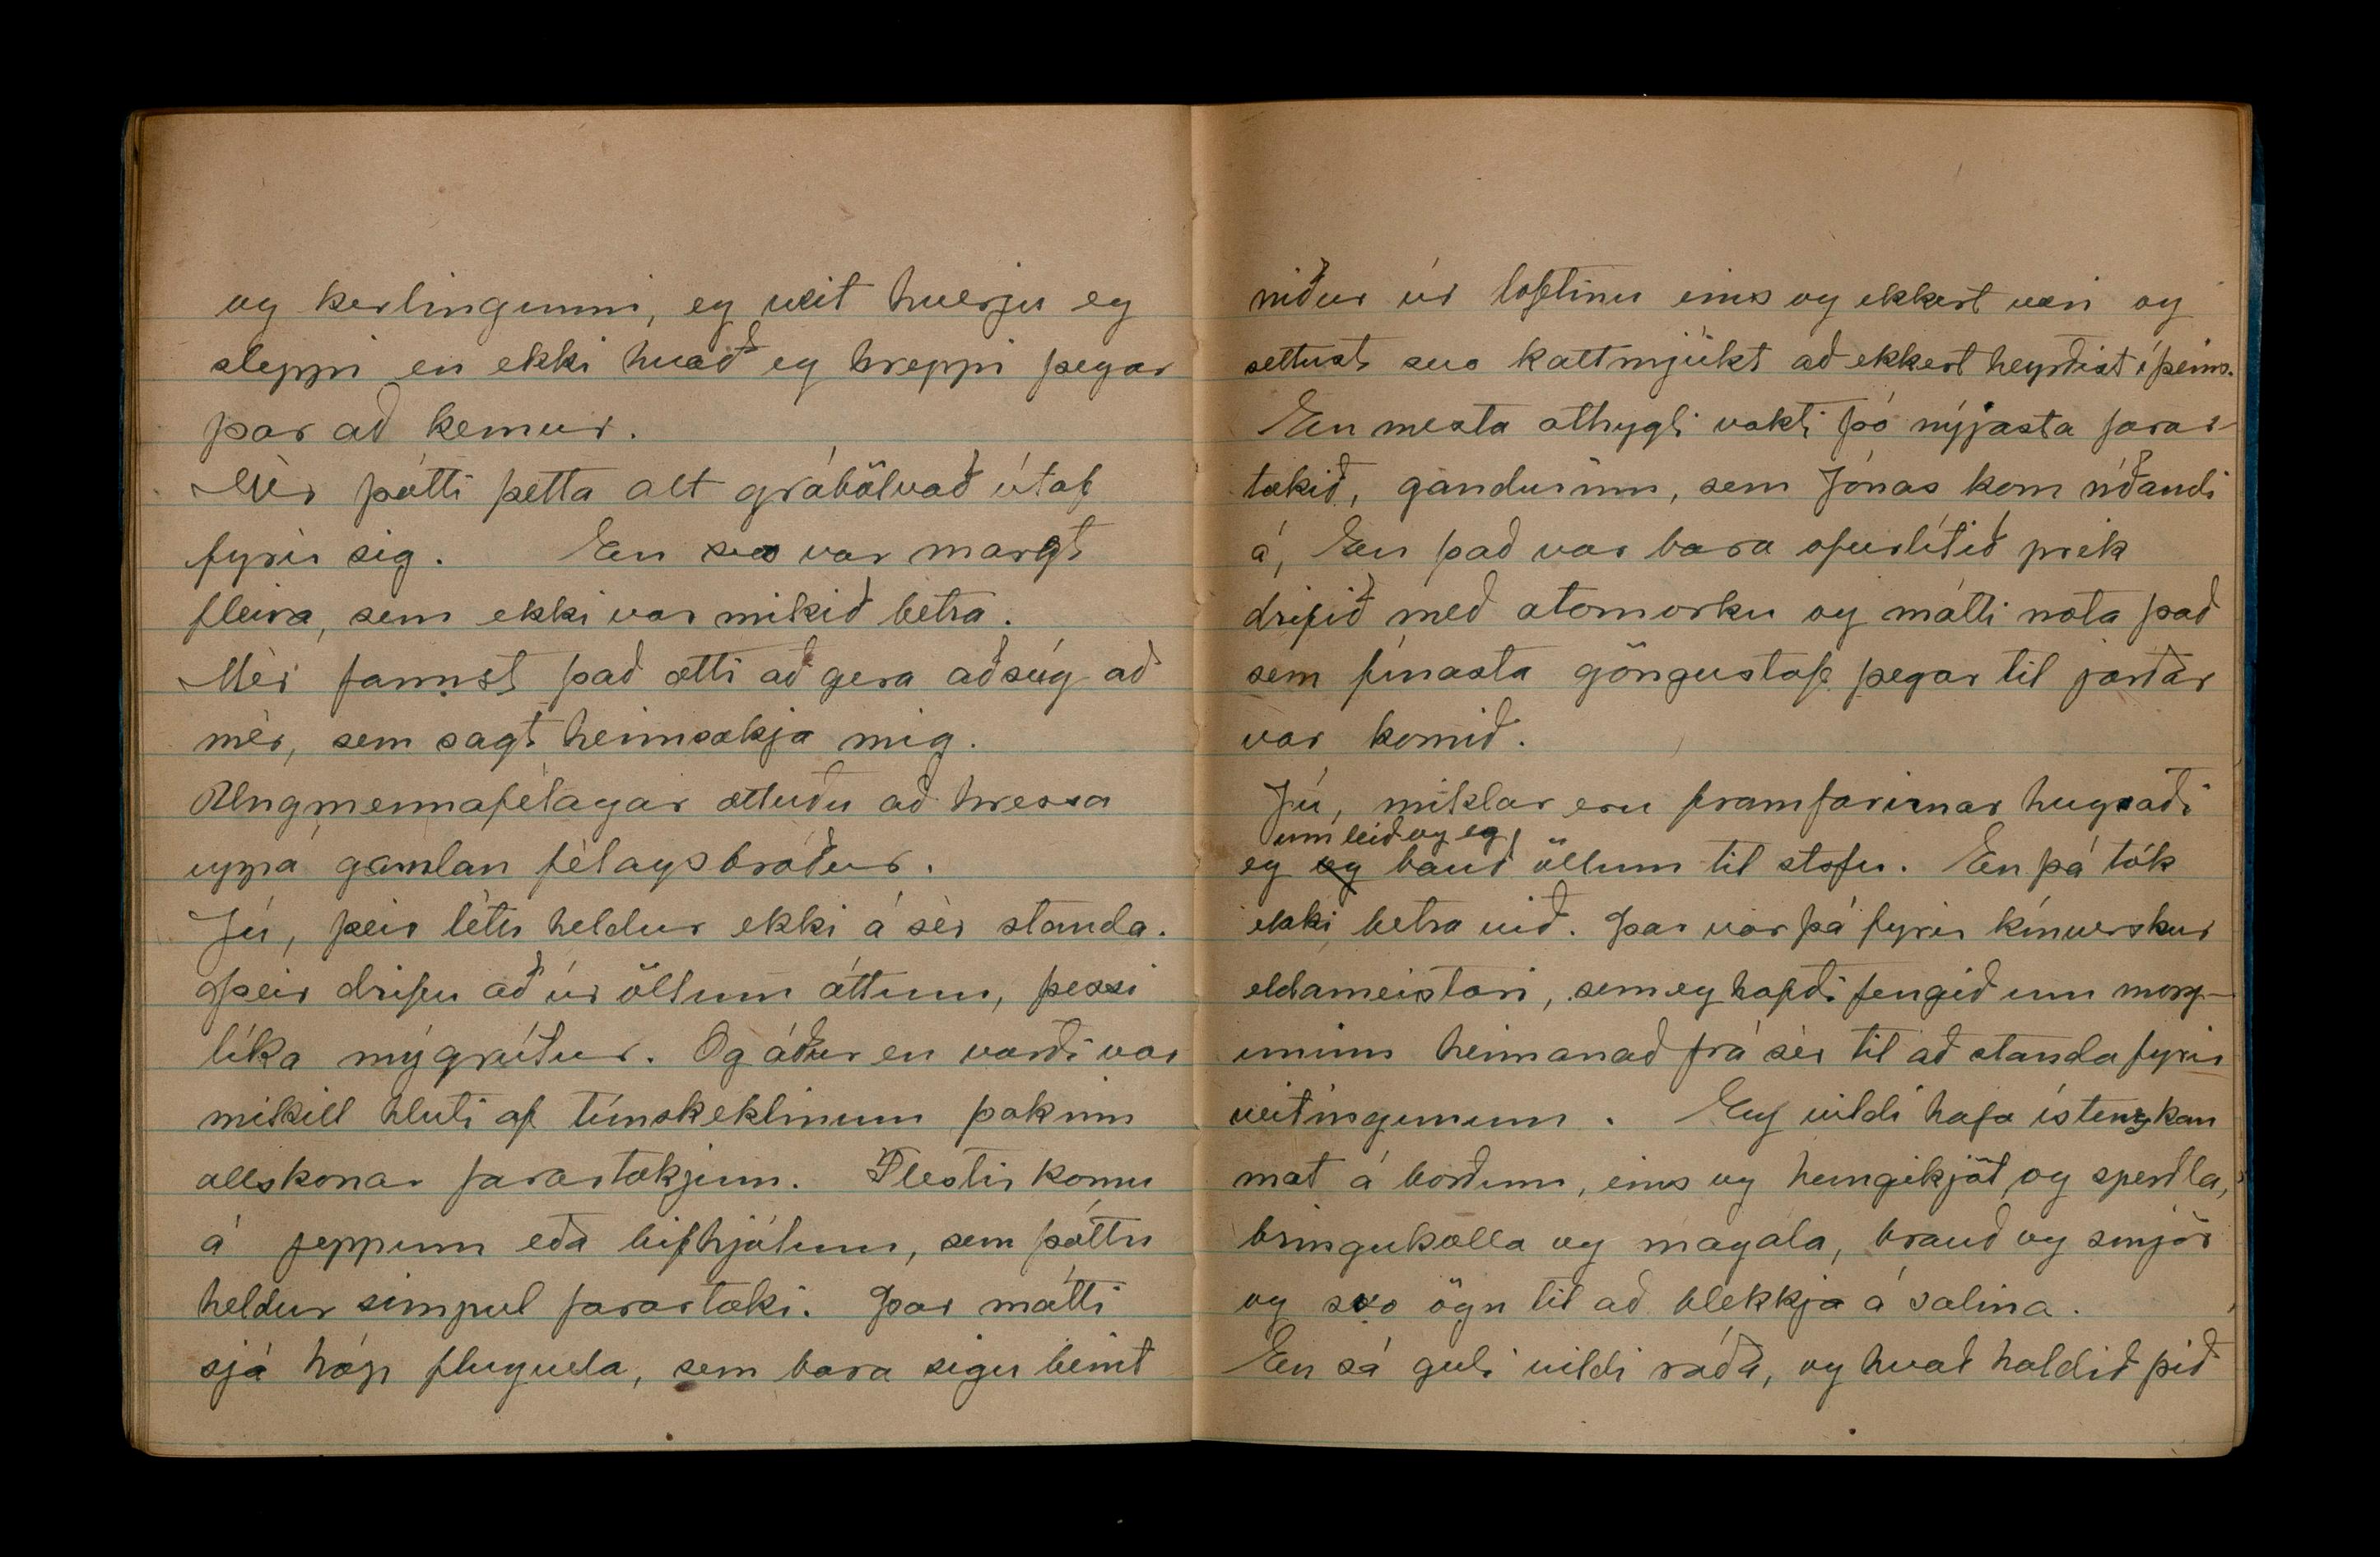 og kerlingunni, eg veit hverju eg
sleppi en ekki hvað eg hreppi þegar
þar að kemur.
Mér þótti þetta alt grábölvað útaf
fyrir sig. En svo var margt
fleira, sem ekki var mikið betra.
Mér fannst það ætti að gera aðsúg að
mér, sem sagt heimsækja mig.
Ungmennafélagar ætluðu að hressa
uppá gamlan félagsbróður.
Jú, þeir létu heldur ekki á sér standa.
Þeir drifu að úr öllum áttum, þessi
líka mýgrútur. Og áður en varði var
mikill hluti af túnskeklinum þakinn
allskonar farartækjum. Flestir komu
á jeppum eða bifhjólum, sem þóttu
heldur simpul farartæki. Þar mátti
sjá hóp flugvela, sem bara sigu beint
niður úr loftinu eins og ekkert væri og
settust svo kattmjúkt að ekkert heyrðist í þeim.
En mesta athygli vakti þó nýjasta farar-
tækið, gandurinn, sem Jónas kom ríðandi
á, En það var bara ofurlítið prik
drifið með atomorku og mátti nota það
sem fínasta göngustaf þegar til jarðar
var komið.
Jú, miklar eru framfarirnar hugsaði
um leið og eg
eg og bauð öllum til stofu. En þá tók
ekki betra við. Þar var þá fyrir kínverskur
eldameistari, sem eg hafði fengið um morg-
uninn heimanað frá sér til að standa fyrir
veitingunum. Eg vildi hafa íslenzkan
mat á borðum, eins og hangikjöt og sperðla,
bringukolla og magala, brauð og smjör
og svo ögn til að blekkja á salina.
En sá guli vildi ráða, og hvað haldið þið